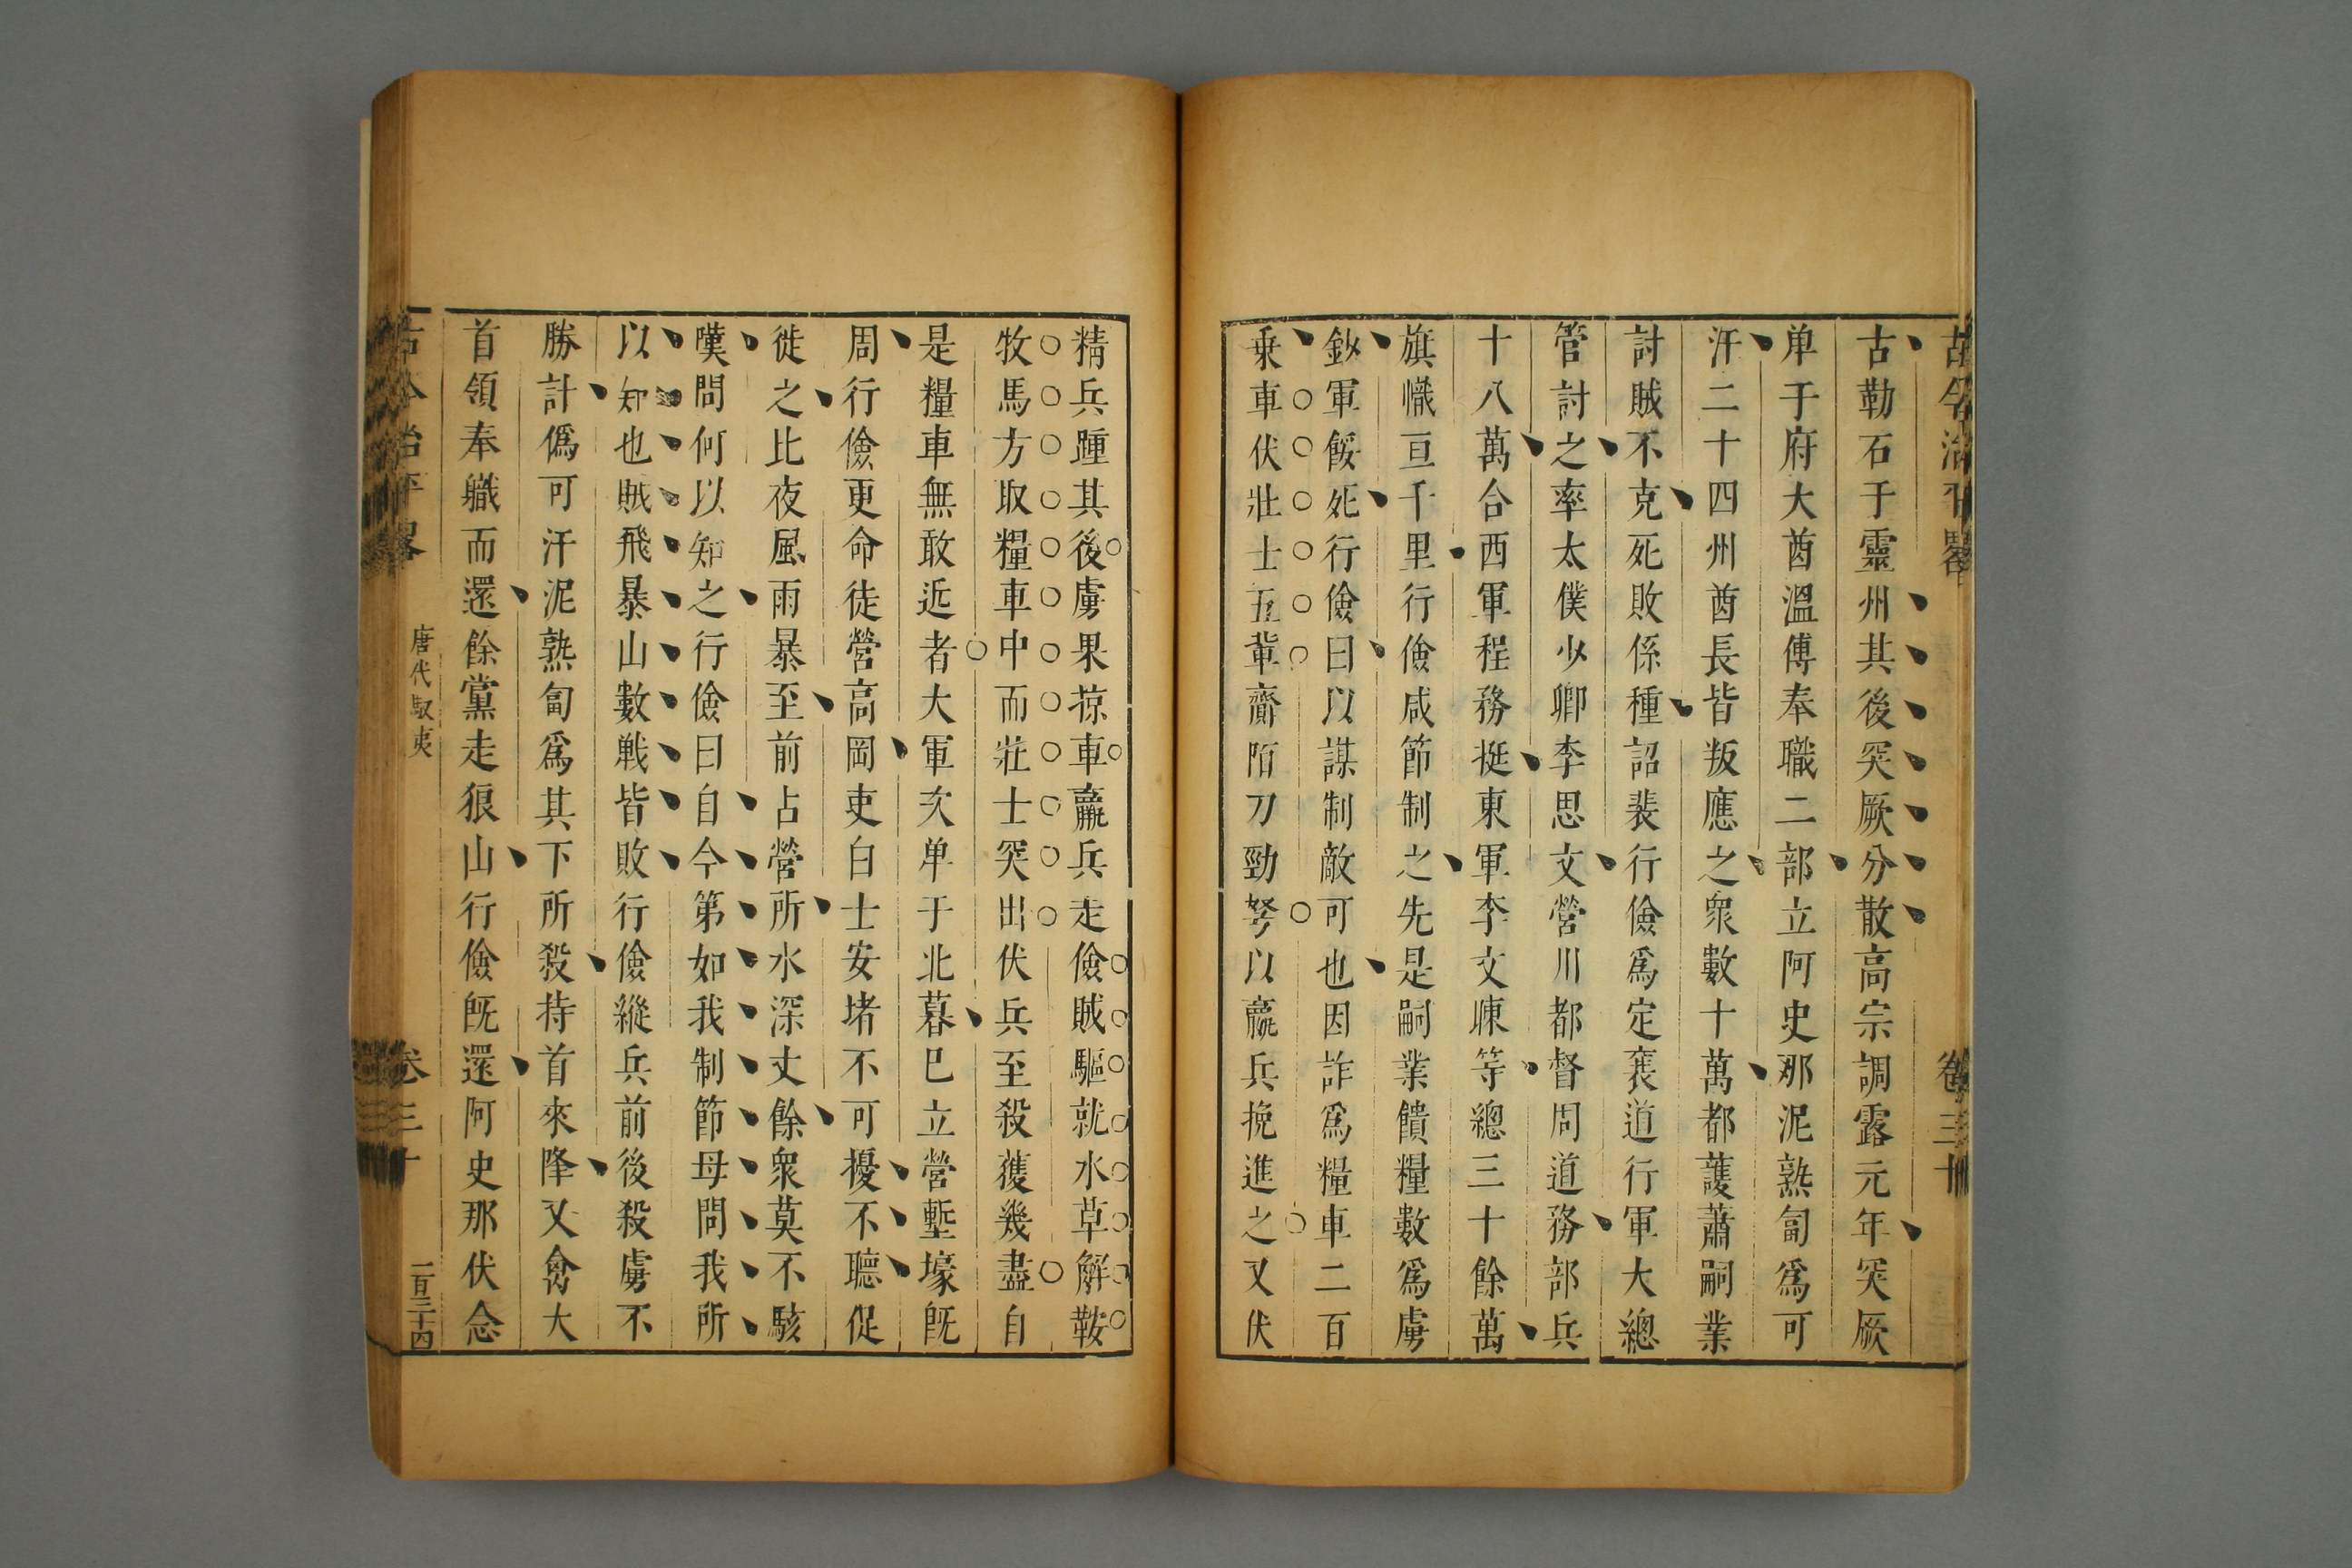 古今治平畧 卷三十
古勒石于靈州其後突厥分散高宗調露元年突厥
单于府大酋溫傅奉職二部立阿史那泥熟匐爲可
汗二十四州酋長皆叛應之衆數十萬都護蕭嗣業
討賊不克死敗係種詔裴行儉爲定襄道行軍大總
管討之率太僕少卿李思文營川都督周道務部兵
十八萬合西軍程務挺東軍李文暕等總三十餘萬
旗幟亘千里行儉咸節制之先是嗣業饋糧數爲虜
鈔軍餒死行儉曰以謀制敵可也因詐爲糧車二百
乗車伏壯士五軰齎陌刀勁弩以羸兵挽進之又伏
精兵踵其後虜果掠車羸兵走儉賊驅就水草解鞍
牧馬方取糧車中而壯士突出伏兵至殺獲幾盡自
是糧車無敢近者大軍次单于北暮已立營塹壕旣
周行儉更命徒營高岡吏白士安堵不可擾不聽促
徙之比夜風雨暴至前占營所水深丈餘衆莫不駭
嘆問何以知之行儉曰自今第如我制節毋問我所
以知也賊飛暴山數戰皆敗行儉縱兵前後殺虜不
勝計僞可汗泥熟匐爲其下所殺持首來降又禽大
首領奉職而還餘黨走狼山行儉旣還阿史那伏念
古今治平畧 唐代馭夷 卷三十 一百三十四